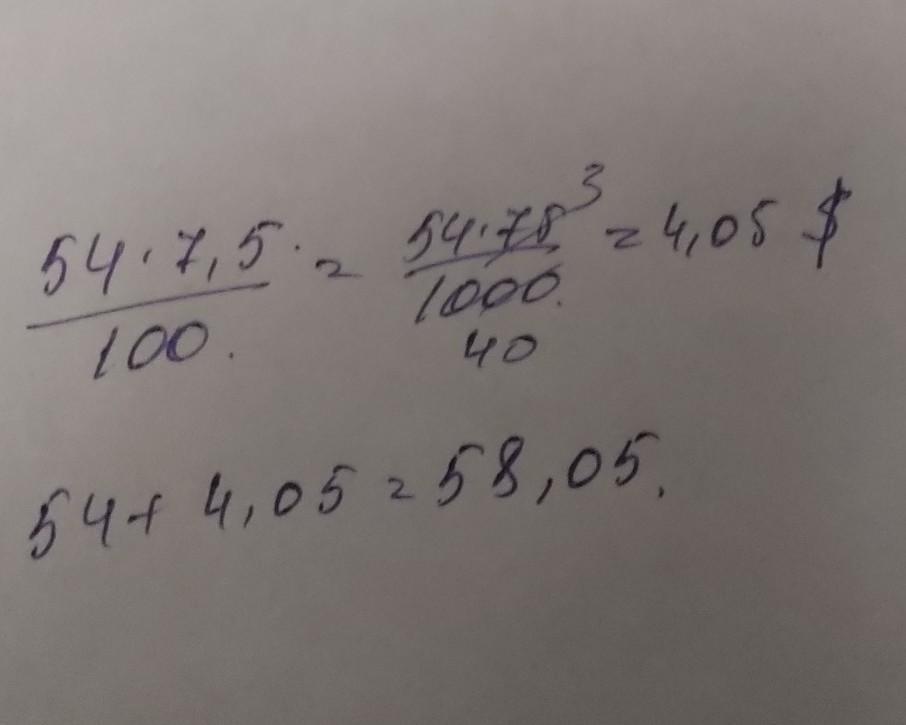 54·7,5 / 100 = 54·75 3 / 1000 40 = 4,05 $
54 + 4,05 = 58,05.